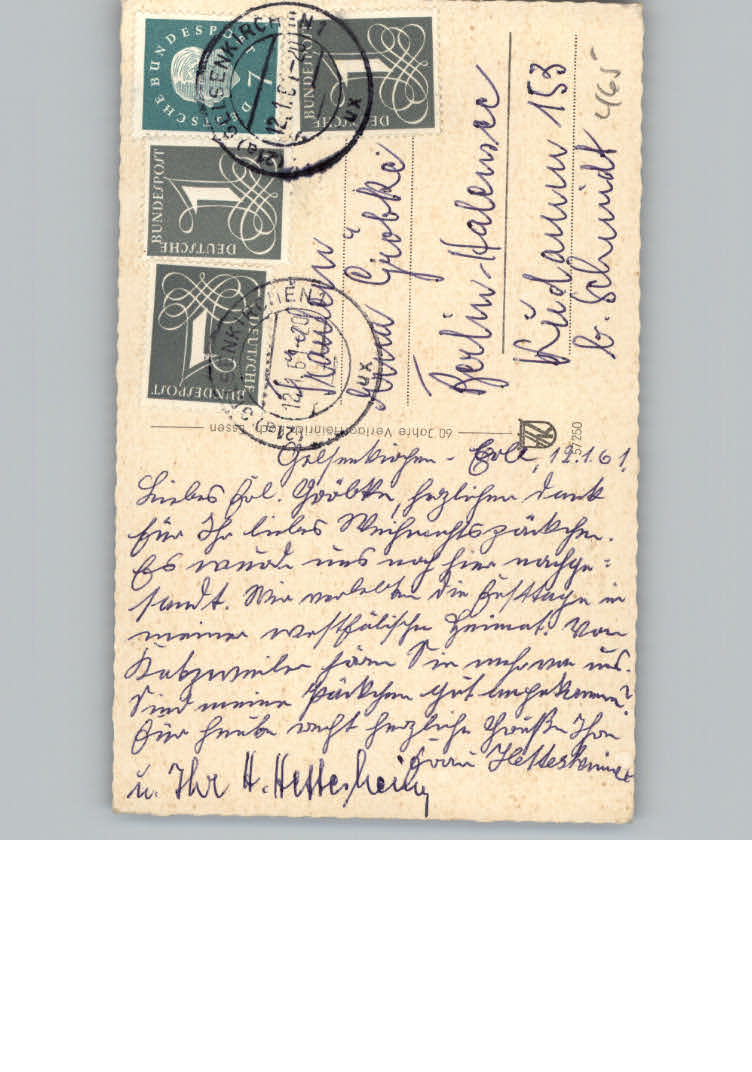 DEUTSCHE BUNDESPOST
7
DEUTSCHE BUNDESPOST
1
DEUTSCHE BUNDESPOST
1
DEUTSCHE BUNDESPOST
1
(21a) GELSENKIRCHEN 1
12.1.61-20
ux
(21a) GELSENKIRCHEN 1
12.1.61-20
ux
Fräulein
Gröbke
Berlin-Halensee
Kudamm 153
b. Schmidt
465
60 Jahre Verlag Heinrich Koch, Essen
57250
Gelsenkirchen - Erle, 12.1.61.
Liebes Frl. Gröbke, herzlichen Dank
für Ihr liebes Weihnachtspäckchen.
Es wurde uns nach hier nachge=
sandt. Wir verlebten die Festtage in
meiner westfälischen Heimat. Von
hören Sie mehr von uns.
Sind meine Päckchen gut angekommen?
Für heute recht herzliche Grüße Ihre
Frau Hettesheimer
u. Ihr H. Hettesheimer